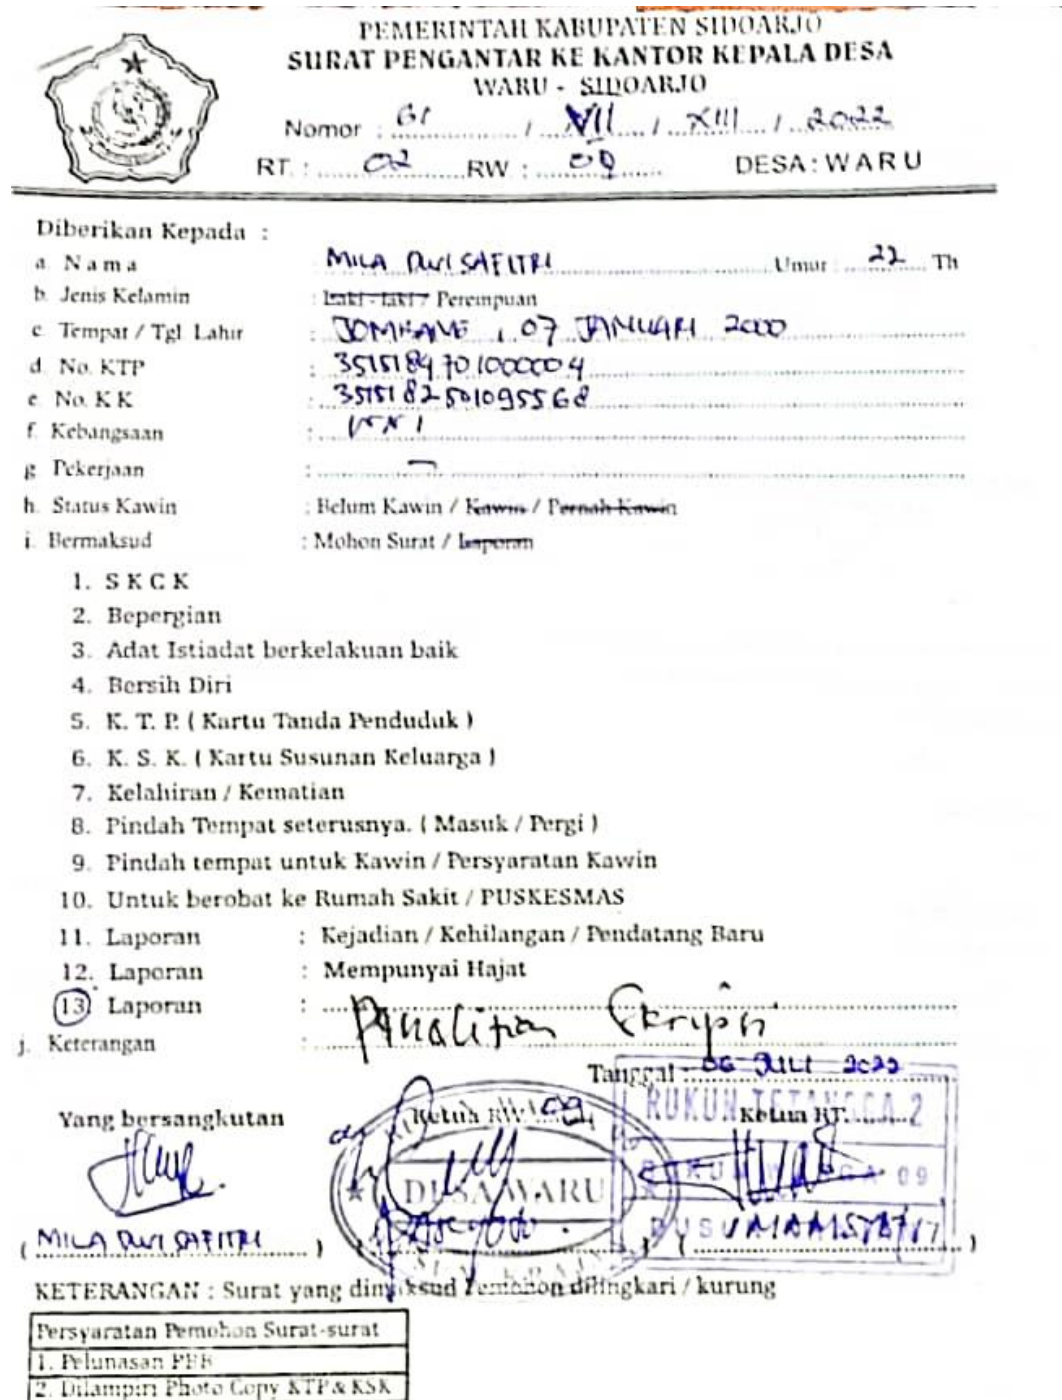 PEMERINTAH KABUPATEN SIDOARJO
SURAT PENGANTAR KE KANTOR KEPALA DESA
WARU - SIDOARJO
Nomor : 61 / VII / XIII / 2022
RT. : 02 RW : 09 DESA : WARU
Diberikan Kepada :
a. Nama : MILA DWI SAFITRI Umur : 22 Th
b. Jenis Kelamin : Laki - laki / Perempuan
c. Tempat / Tgl. Lahir : JOMBANG , 07 JANUARI 2000
d. No. KTP : 3515184701000004
e. No. K K : 3515182501095568
f. Kebangsaan : WNI
g. Pekerjaan : -
h. Status Kawin : Belum Kawin / Kawin / Pernah Kawin
i. Bermaksud : Mohon Surat / Laporan
1. S K C K
2. Bepergian
3. Adat Istiadat berkelakuan baik
4. Bersih Diri
5. K. T. P. ( Kartu Tanda Penduduk )
6. K. S. K. ( Kartu Susunan Keluarga )
7. Kelahiran / Kematian
8. Pindah Tempat seterusnya. ( Masuk / Pergi )
9. Pindah tempat untuk Kawin / Persyaratan Kawin
10. Untuk berobat ke Rumah Sakit / PUSKESMAS
11. Laporan : Kejadian / Kehilangan / Pendatang Baru
12. Laporan : Mempunyai Hajat
13. Laporan : Penelitian Skripsi
j. Keterangan :
Tanggal 06 JULI 2022
Yang bersangkutan Ketua RW. 09 Ketua RT.
RUKUN TETANGGA 2
RUKUN WARGA 09
DESA WARU
( MILA DWI SAFITRI ) ( ) ( )
KETERANGAN : Surat yang dimaksud Pemohon dilingkari / kurung
Persyaratan Pemohon Surat-surat
1. Pelunasan PBB
2. Dilampiri Photo Copy KTP & KSK